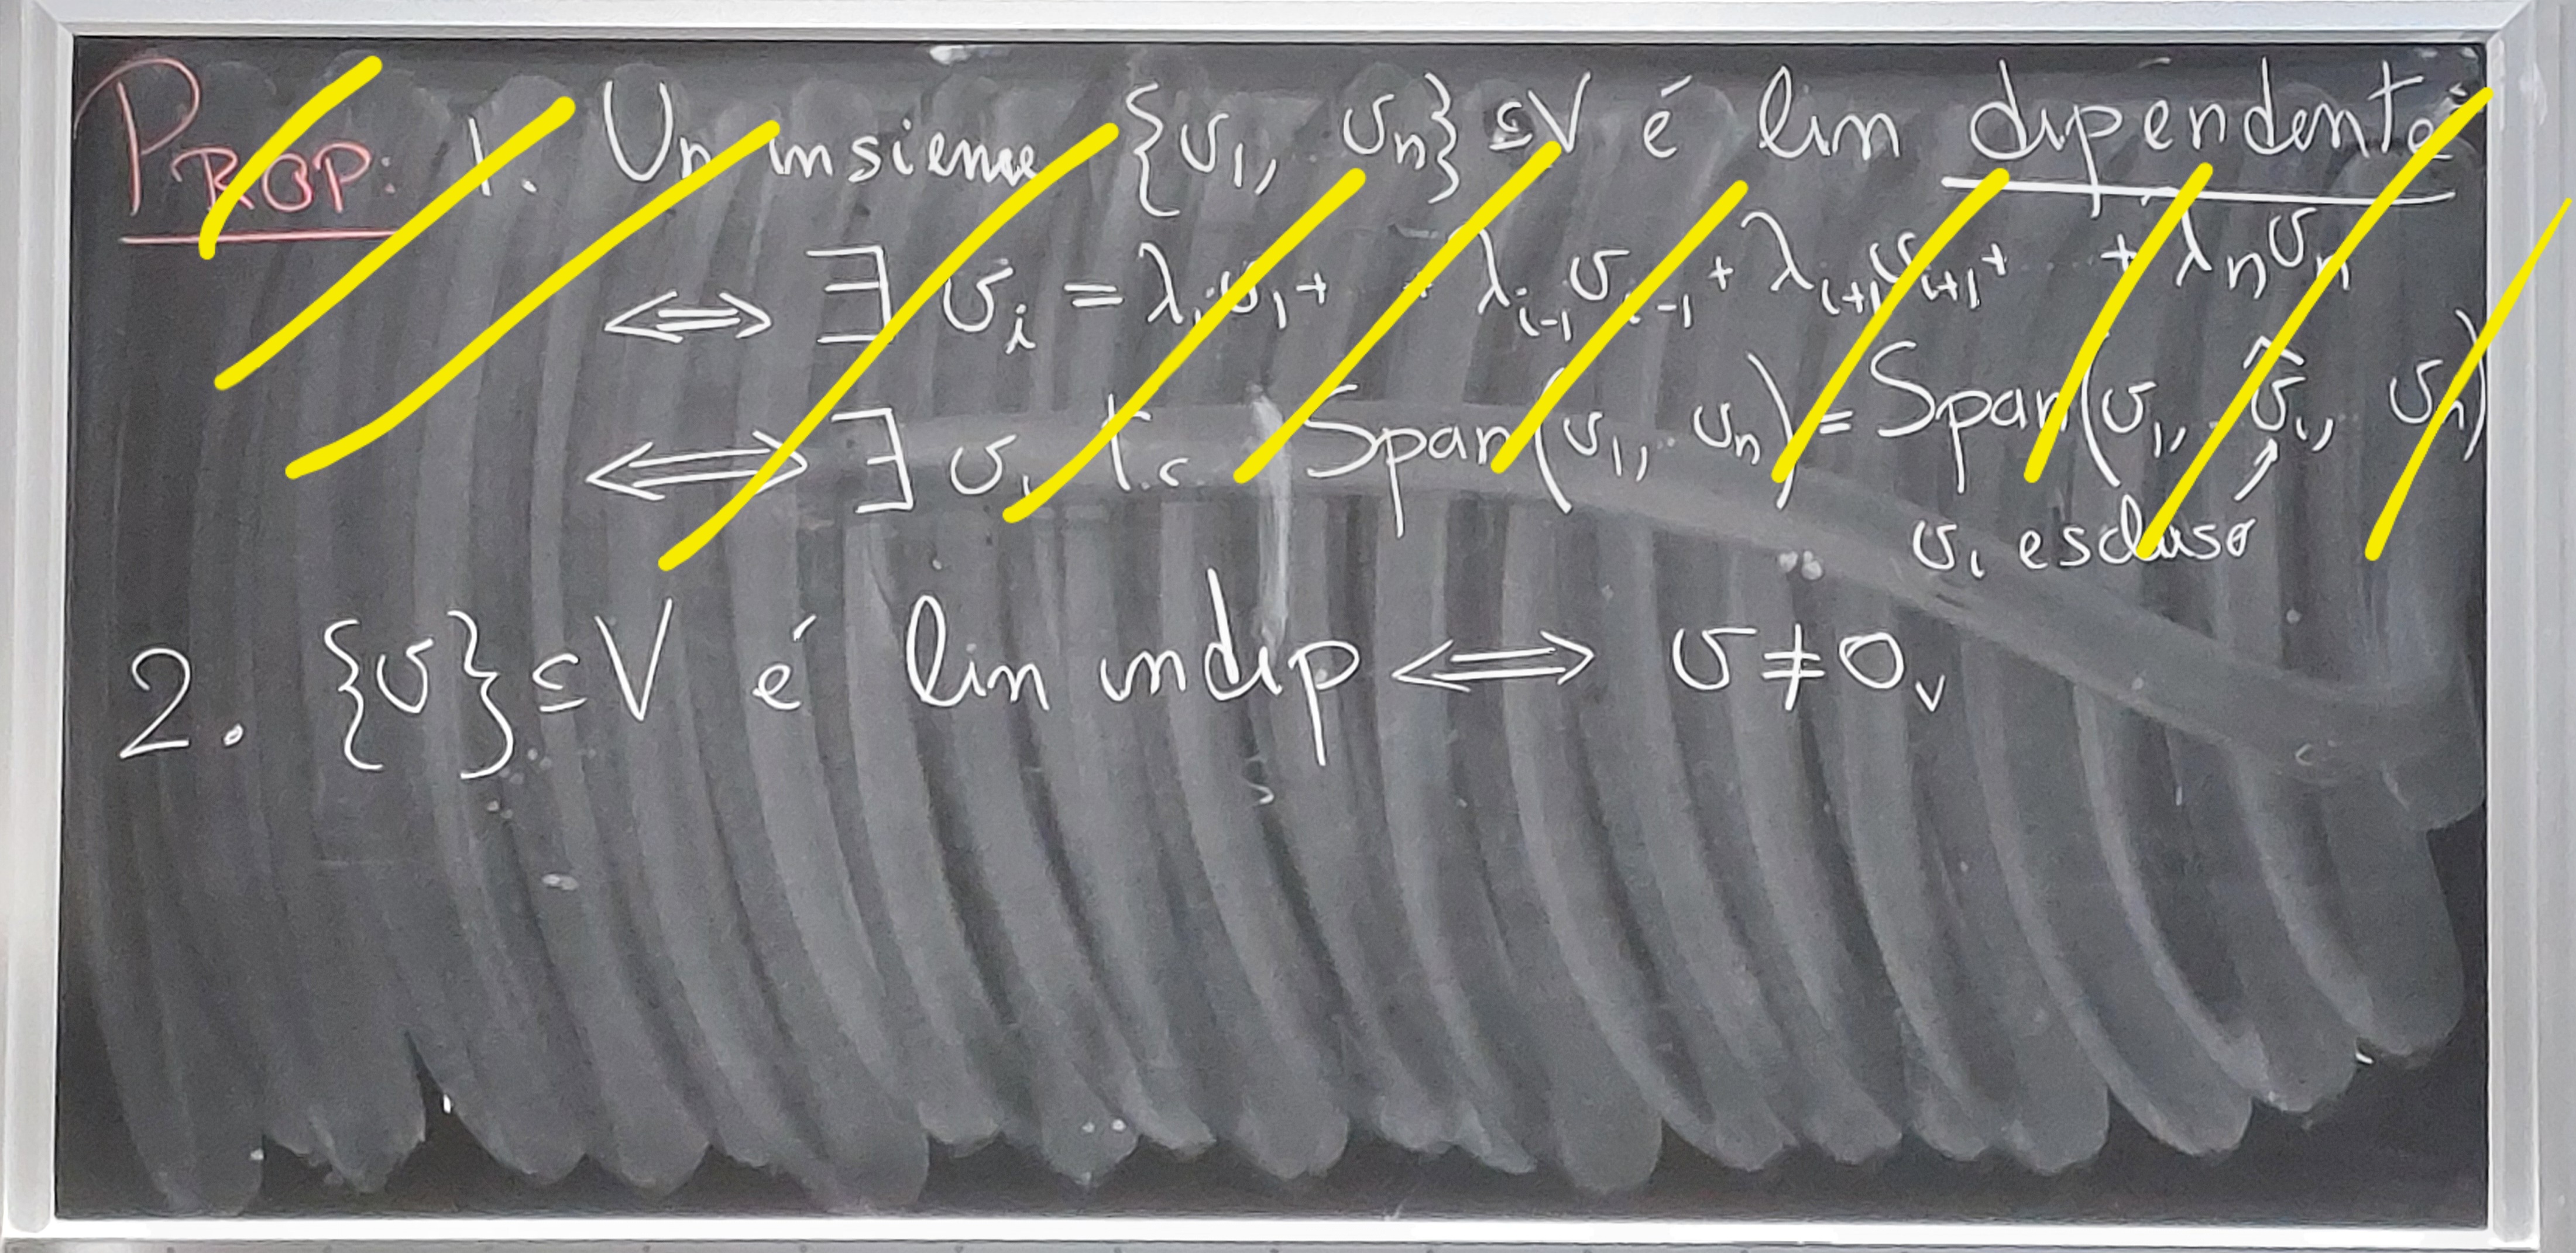 PROP: 1. Un insieme {v₁, vₙ} ⊆ V é lin dipendente
⟺ ∃ vᵢ = λ₁v₁ + + λᵢ₋₁vᵢ₋₁ + λᵢ₊₁vᵢ₊₁ + ... + λₙvₙ
⟺ ∃ vᵢ t.c. Span(v₁, .. vₙ) = Span(v₁, .. v̂ᵢ, vₙ)
vᵢ escluso
2. {v} ⊆ V é lin indip ⟺ v ≠ 0ᵥ